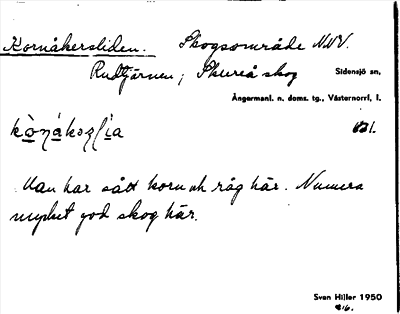 Kornåkersliden. Skogsområde NNV.
Rudtjärnen; Skureå skog Sidensjö sn,
Ångermanl. n. doms. tg., Västernorrl. l.
121.
Man har sått korn och råg här. Numera
mycket god skog här.
Sven Hiller 1950